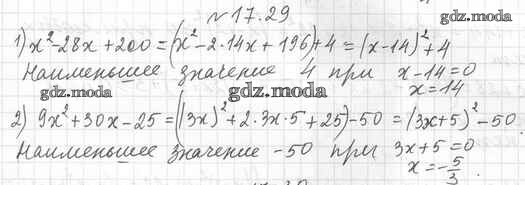 №17.29
gdz.moda
1) x²-28x+200=(x²-2·14x+196)+4=(x-14)²+4
Наименьшее значение 4 при x-14=0
x=14
gdz.moda
gdz.moda
2) 9x²+30x-25=((3x)²+2·3x·5+25)-50=(3x+5)²-50.
Наименьшее значение -50 при 3x+5=0
x=-5/3.